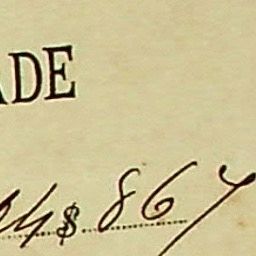 ADE
$ 867